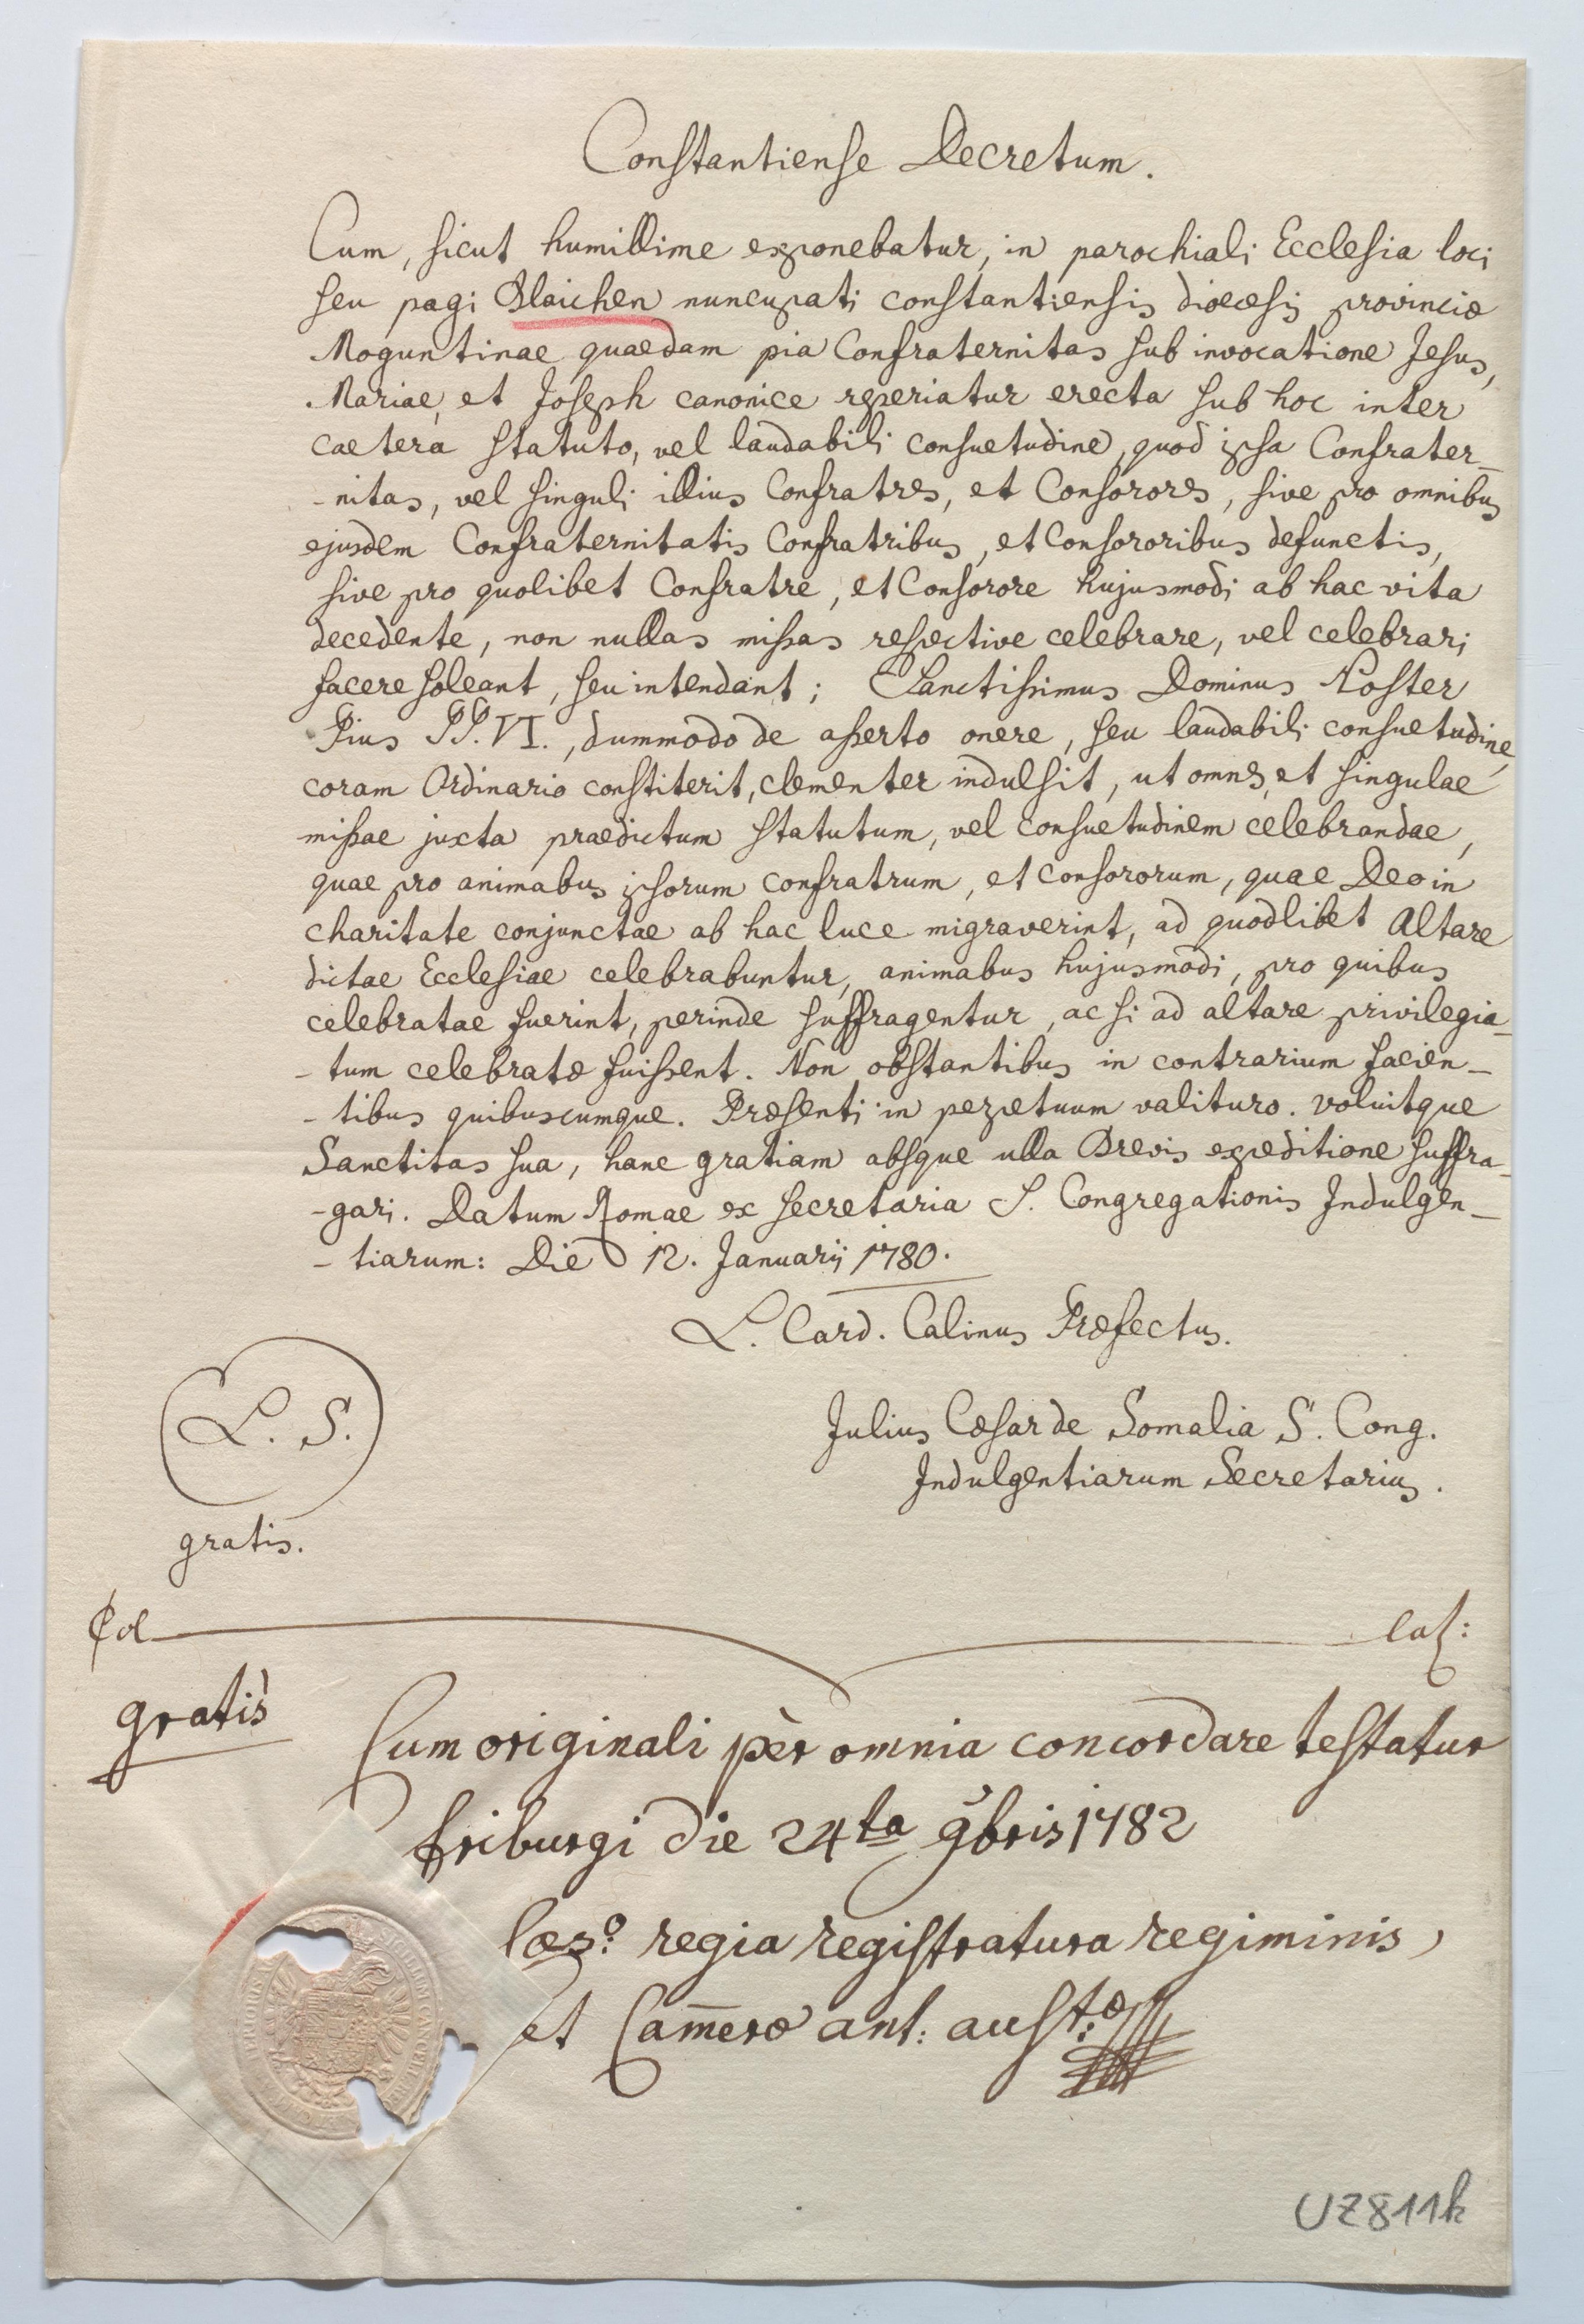 Constantiense Decretum.
Cum, sicut humillime exponebatur, in parochiali Ecclesia loci
seu pagi Blaichen nuncupati constantiensis dioecesis provinciæ
Moguntinae quaedam pia Confraternitas sub invocatione Jesus,
Mariae, et Joseph canonice reperiatur erecta sub hoc inter
caetera statuto, vel laudabili consuetudine, quod ipsa Confrater-
-nitas, vel singuli illius Confratres, et Consorores, sive pro omnibus
ejusdem Confraternitatis Confratribus, et Consororibus defunctis,
sive pro quolibet Confratre, et Consorore hujusmodi ab hac vita
decedente, non nullas missas respective celebrare, vel celebrari
facere soleant, seu intendant; Sanctissimus Dominus Noster
Pius PP. VI., dummodo de asserto onere, seu laudabili consuetudine,
coram Ordinario constiterit, clementer indulsit, ut omnes, et singulae
missae juxta praedictum statutum, vel consuetudinem celebrandae,
quae pro animabus ipsorum confratrum, et consororum, quae Deo in
charitate conjunctae ab hac luce migraverint, ad quodlibet Altare
dictae Ecclesiae celebrabuntur, animabus hujusmodi, pro quibus
celebratae fuerint, perinde suffragentur, ac si ad altare privilegia-
-tum celebratæ fuissent. Non obstantibus in contrarium facien-
-tibus quibuscumque. Præsenti in perpetuum valituro. voluitque
Sanctitas sua, hanc gratiam absque ulla Brevis expeditione suffra-
-gari. Datum Romae ex secretaria S. Congregationis Indulgen-
-tiarum: Die 12. Januarij 1780.
L. Card. Calinus Præfectus.
L. S.
Julius Cæsar de Somalia S. Cong.
Indulgentiarum Secretarius.
gratis.
Col las:
gratis
Cum originali per omnia concordare testatur
friburgi die 24ta 9bris 1782
Cæs:o regia registratura regiminis,
et Camēræ ant: aust:æ
UZ811k